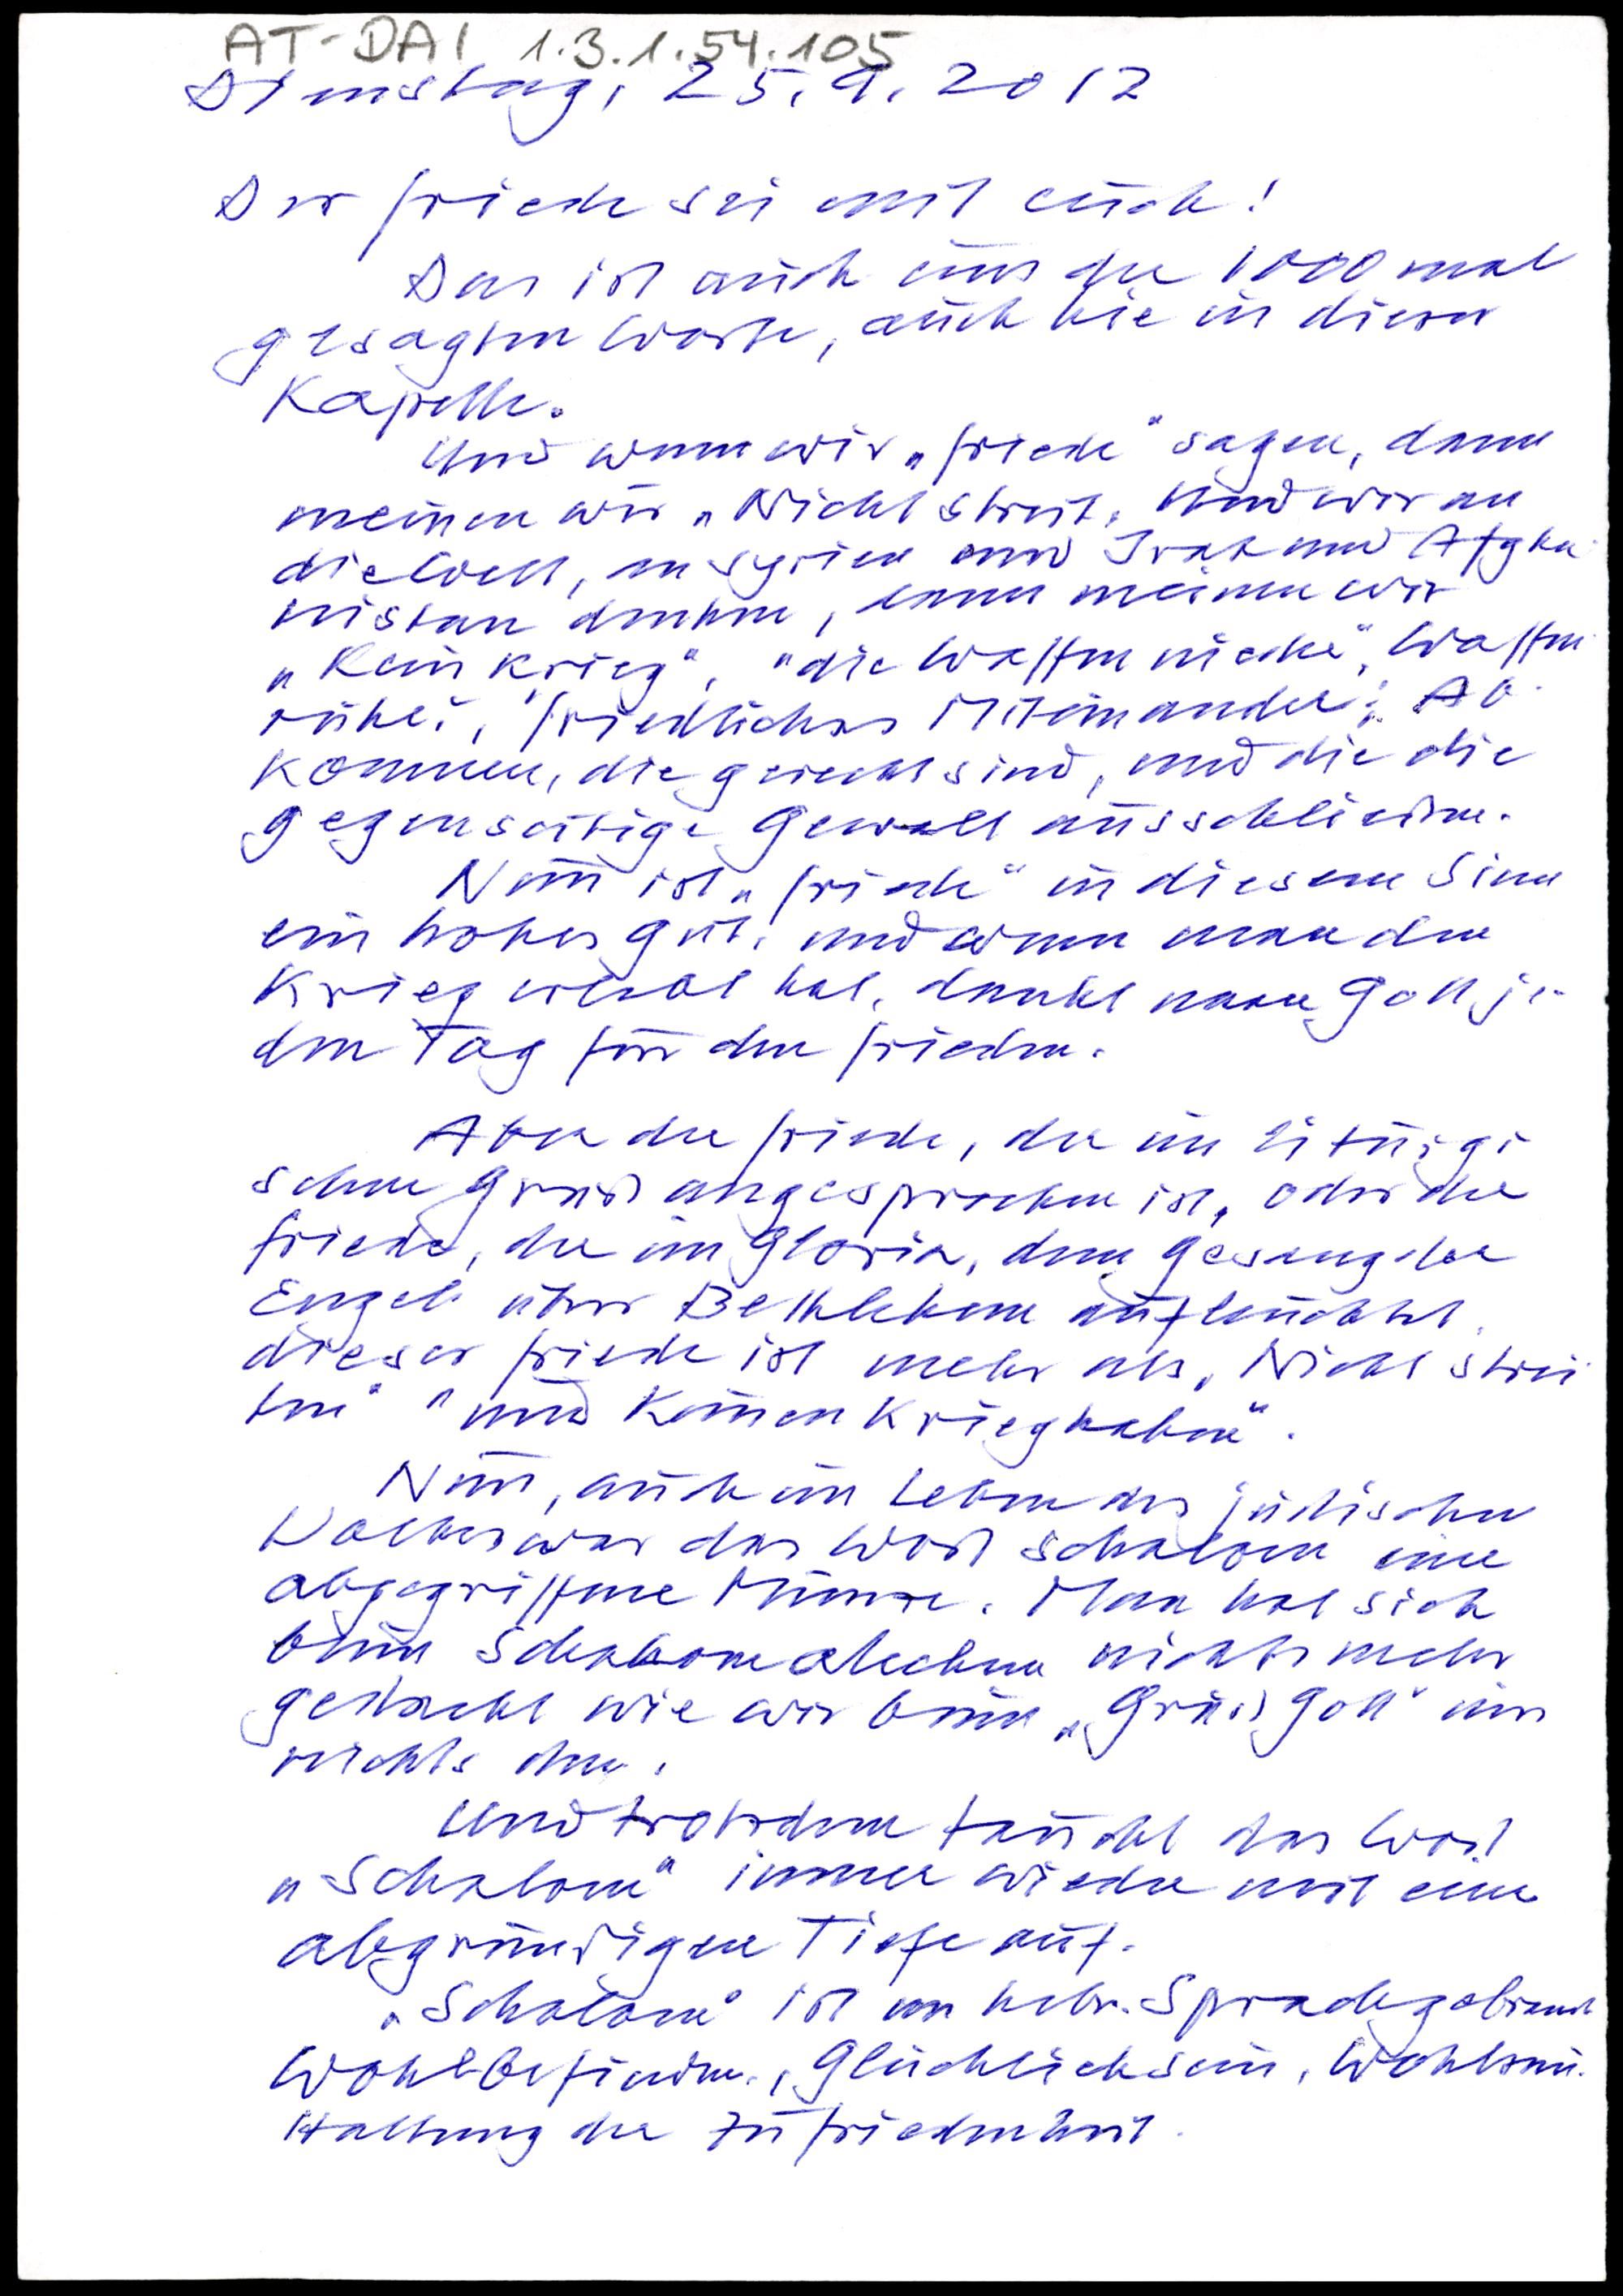 AT-DAI 1.3.1.54.105
Dienstag, 25.9.2012
Der Friede sei mit euch!
Das ist auch eins der 1000 mal
gesagten Worte, auch hie in dieser
Kapelle.
Und wenn wir „Friede" sagen, dann
meinen wir „Nicht Streit. Und wir an
die Welt, an Syrien und Irak und Afgha
nistan denken, dann meinen wir
„Kein Krieg", "die Waffen nieder", Waffen
ruhe", friedliches Miteinander, Ab
kommen, die gerecht sind, und die die
gegenseitige Gewalt ausschließen.
Nun ist „Friede" in diesem Sinn
ein hohes Gut, und wenn man den
Krieg erlebt hat, dankt man Gott je-
den Tag für den Frieden.
Aber der Friede, der im liturgi
schen Gruß angesprochen ist, oder der
Friede, der im Gloria, dem Gesang der
Engel über Bethlehem aufleuchtet,
dieser Friede ist mehr als „Nicht strei
ten" "und keinen Krieg haben".
Nun, auch im Leben des jüdischen
Volkes war das Wort Schalom eine
abgegriffene Münze. Man hat sich
beim Schalom alechem nichts mehr
gedacht wie wir beim „Grüß Gott" uns
nichts den.
Und trotzdem taucht das Wort
„Schalom" immer wieder mit einer
abgründigen Tiefe auf.
„Schalom" ist im hebr. Sprachgebrauch
Wohlbefinden, Glücklichsein, Wohlsein.
Haltung der Zufriedenheit.